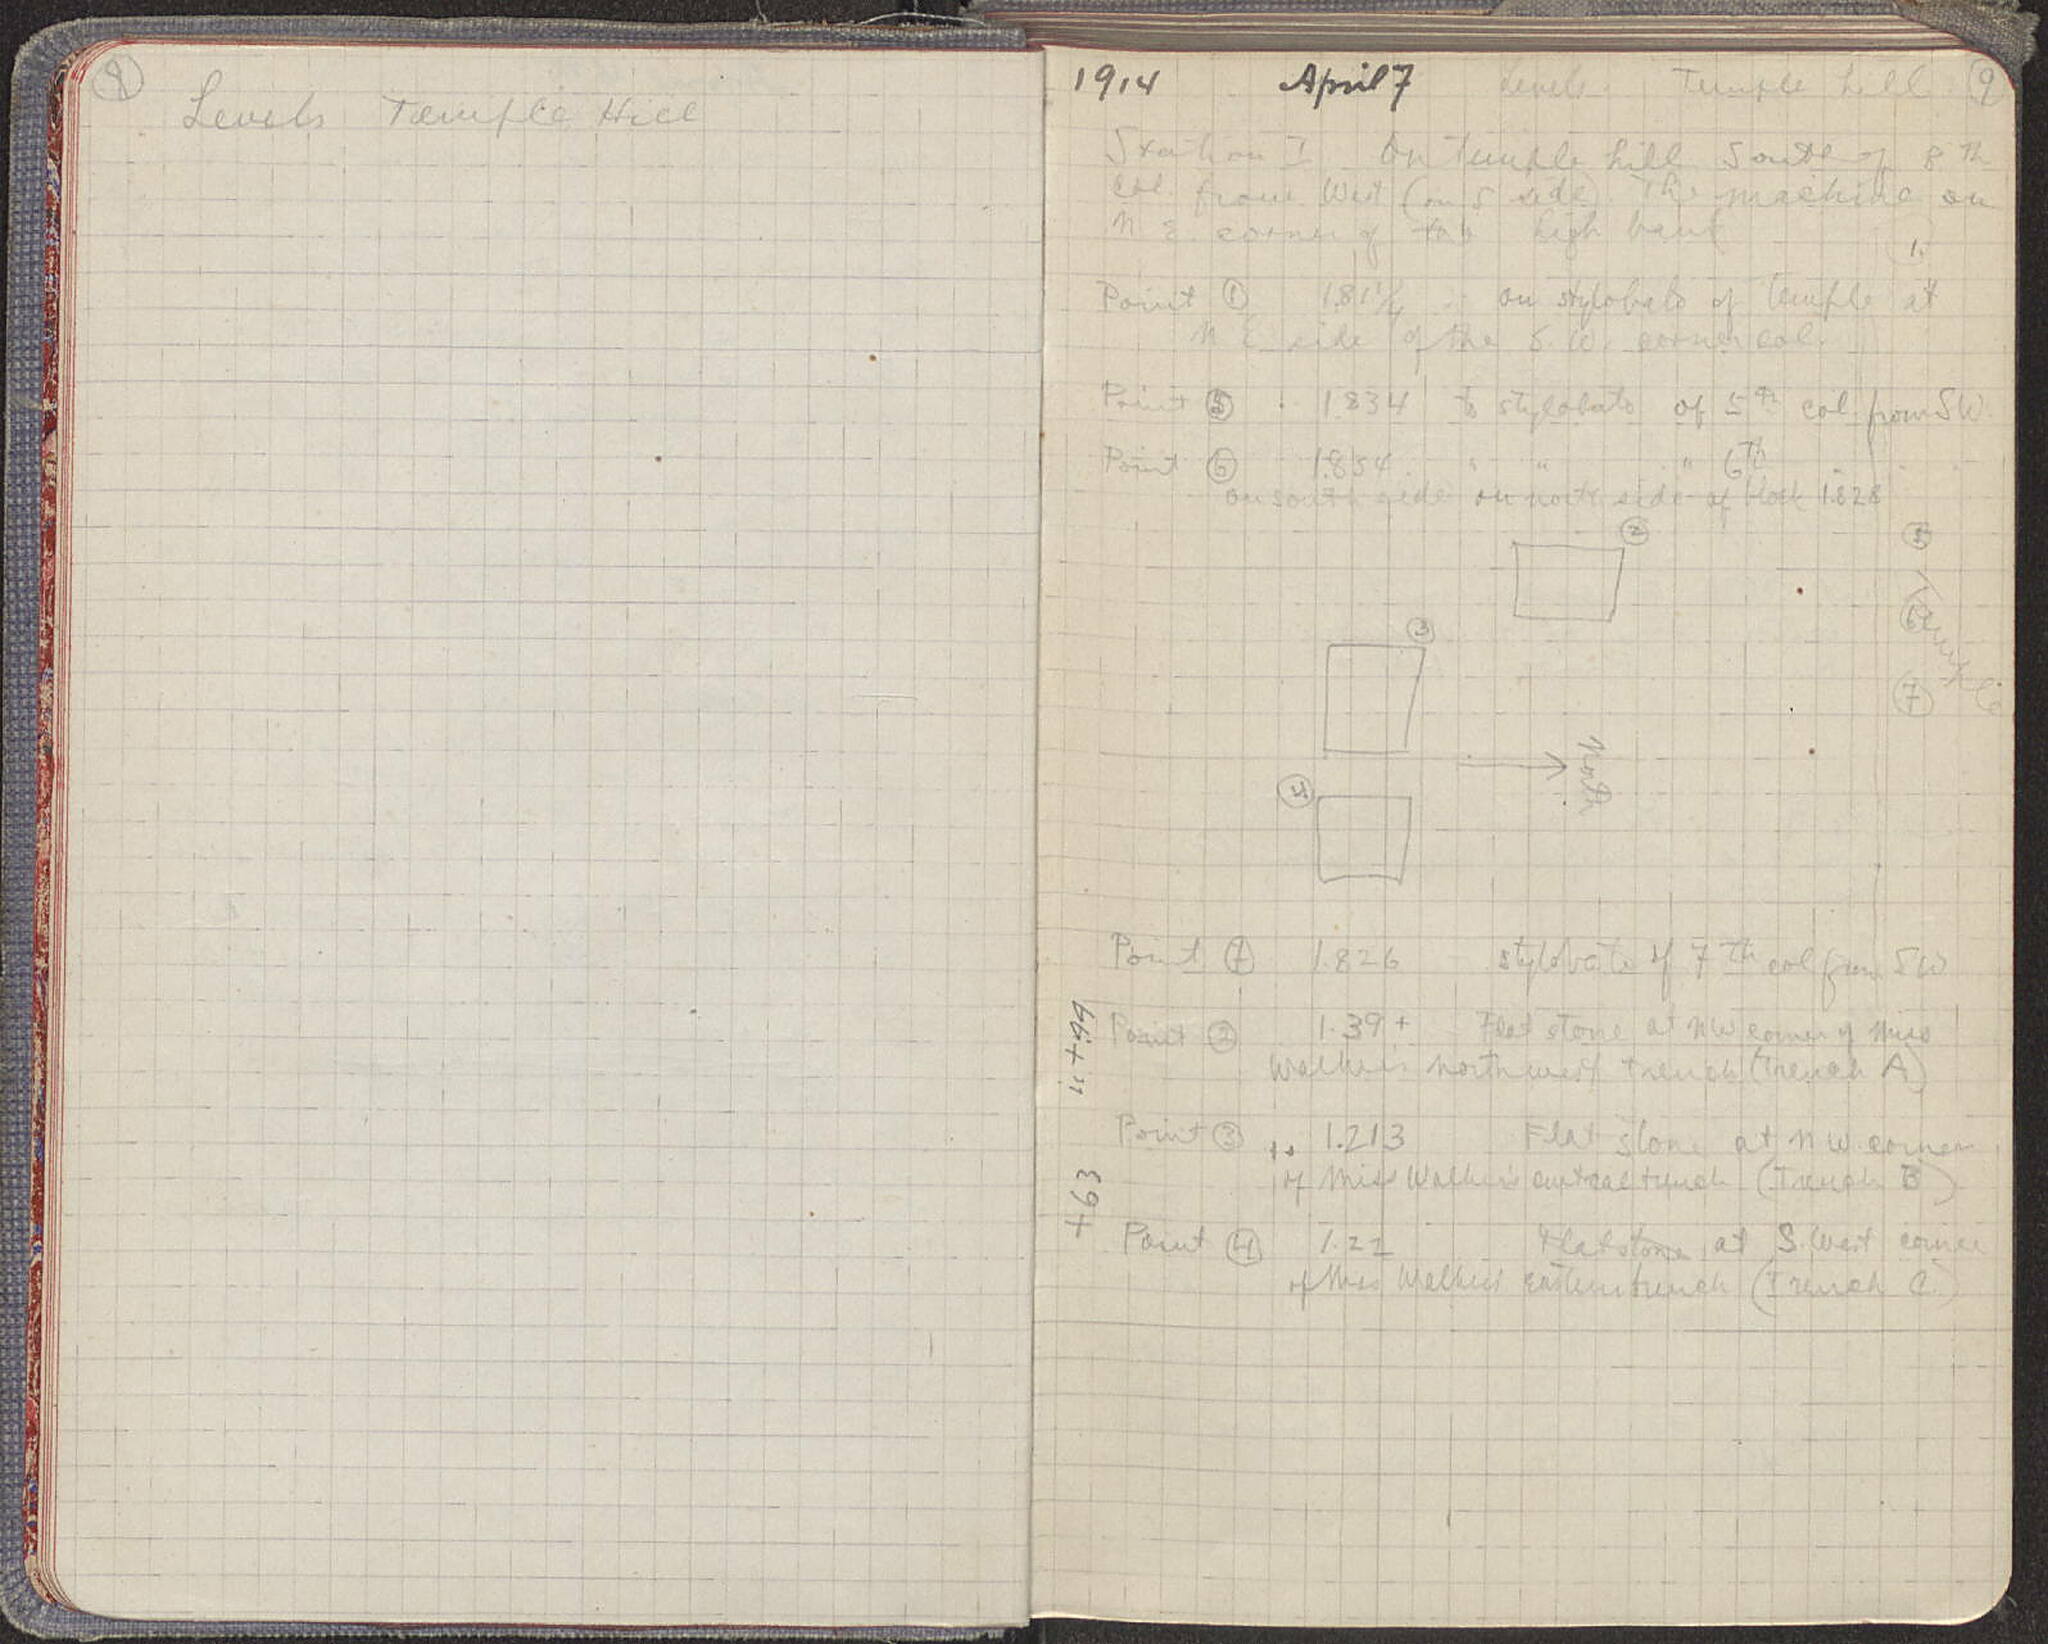 8
Levels Temple Hill
1914 April 7 Levels. Temple hill 9
Station I On temple hill South of 8th
col. from West (on S side). The machine on
N E. corner of the high bank
1.
Point ① 1.81 1/2 on stylobate of temple at
N E side of the S.W. corner col.
Point ⑤ 1.834 to stylobate of 5th col. from SW.
Point ⑥ 1.854 " " " 6th
on south side on north side of block 1.828
②
⑤
③
⑥
Temple
⑦
North
④
Point ⑦ 1.826 stylobate of 7th col from SW
Point ② 1.39+ Flat stone at NW corner of Miss
Walker's northwest trench (Trench A)
Point ③ 1.213 Flat stone at N W. corner
of Miss Walker's central trench (Trench B)
Point ④ 1.22 Flat stone at S. West corner
of Miss Walker's eastern trench (Trench C.)
+.44
+63